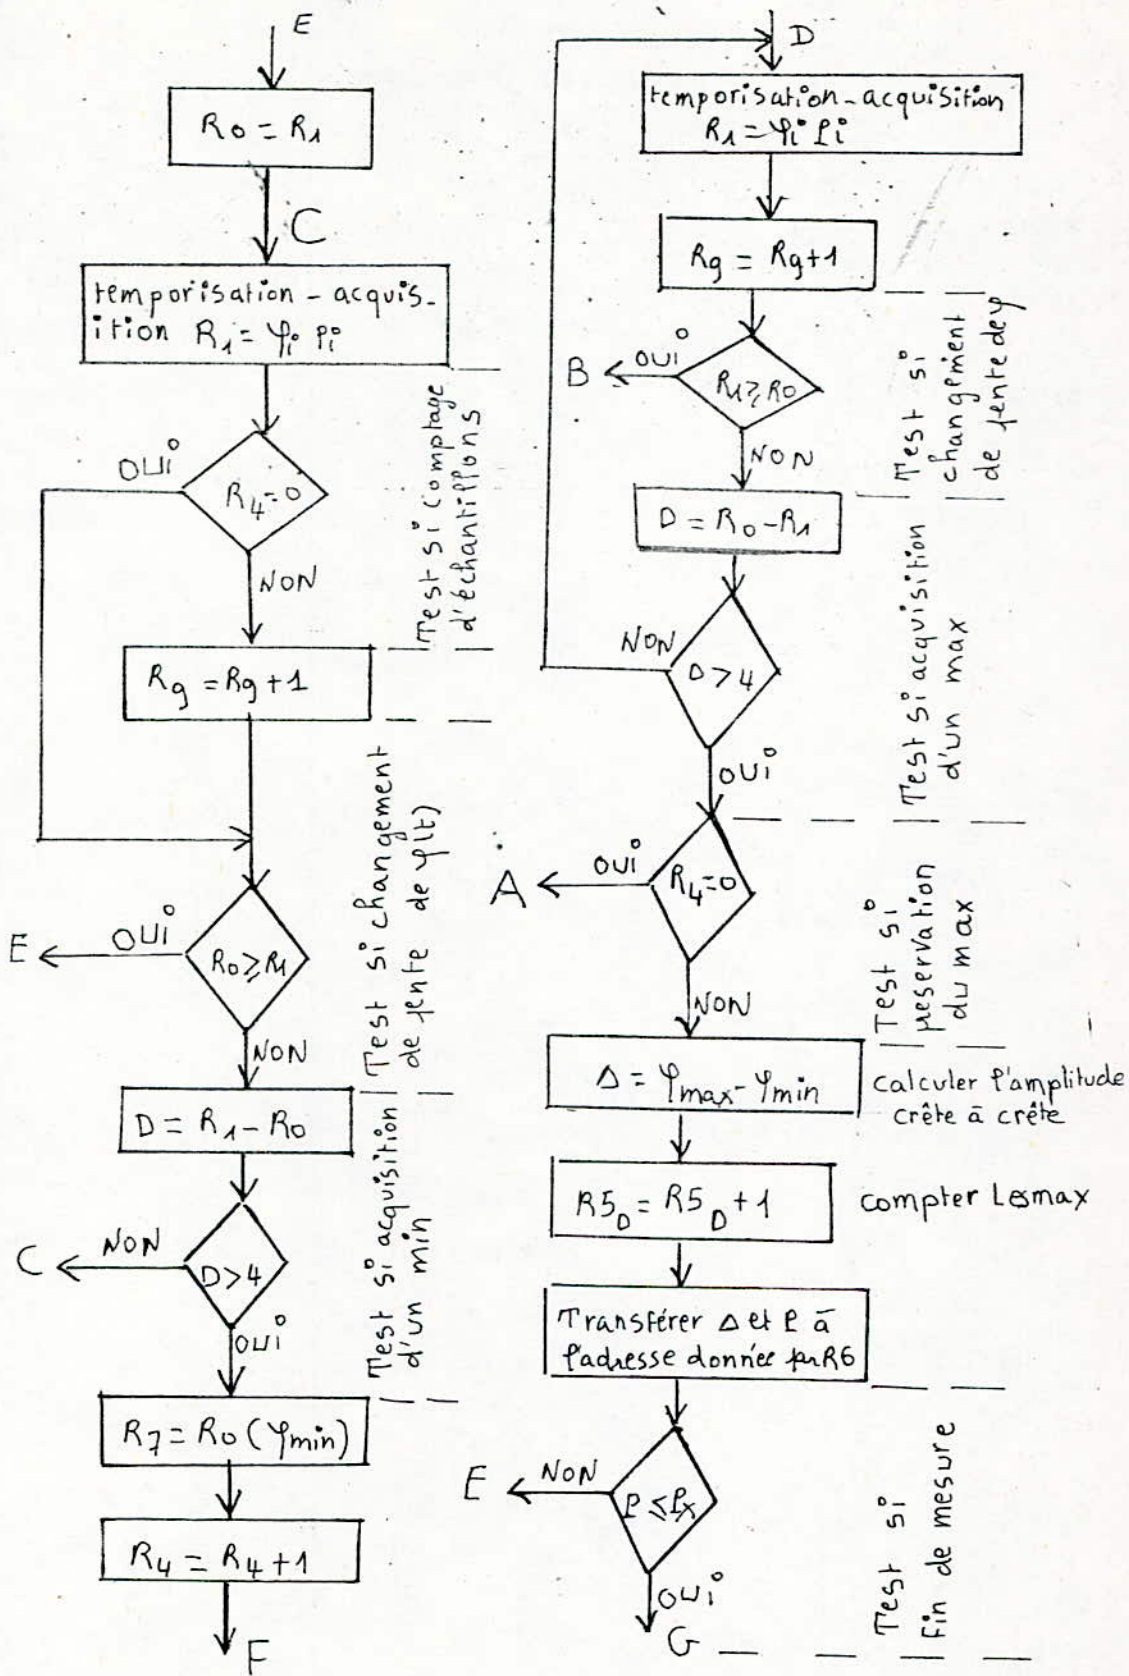 E
R0 = R1
C
temporisation - acquis-
ition R1 = φi Pi
OUI
R4=0
NON
Rg = Rg + 1
Test si comptage
d'échantillons
E
OUI
R0 ≥ R1
NON
Test si changement
de fente de φ(t)
D = R1 - R0
C
NON
D > 4
OUI
Test si acquisition
d'un min
R7 = R0 (φmin)
R4 = R4 + 1
F
D
temporisation - acquisition
R1 = φi Pi
Rg = Rg+1
B
OUI
R1 ≥ R0
NON
Test si
changement
de fente de φ
D = R0 - R1
NON
D > 4
OUI
Test si acquisition
d'un max
A
OUI
R4=0
NON
Test si
du max
Δ = φmax - φmin
calculer l'amplitude
crête à crête
R5D = R5D + 1
compter Les max
Transférer Δ et P à
l'adresse donnée par R6
E
NON
P ≤ Px
OUI
G
Test si
fin de mesure